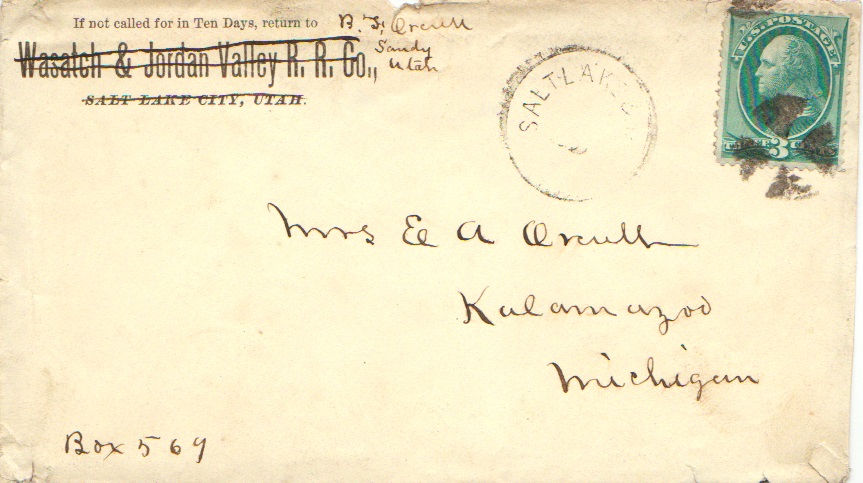 If not called for in Ten Days, return to B. F. Orcutt
Wasatch & Jordan Valley R. R. Co., Sandy
Utah
SALT LAKE CITY, UTAH.
SALT LAKE
U.S. POSTAGE
3
Mrs E A Orcutt
Kalamazoo
Michigan
Box 569